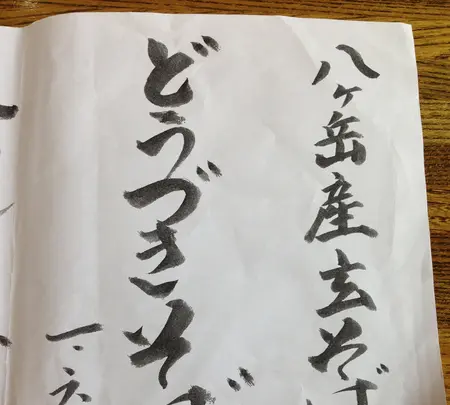 八ヶ岳産玄そば
どうづきそば
一、六